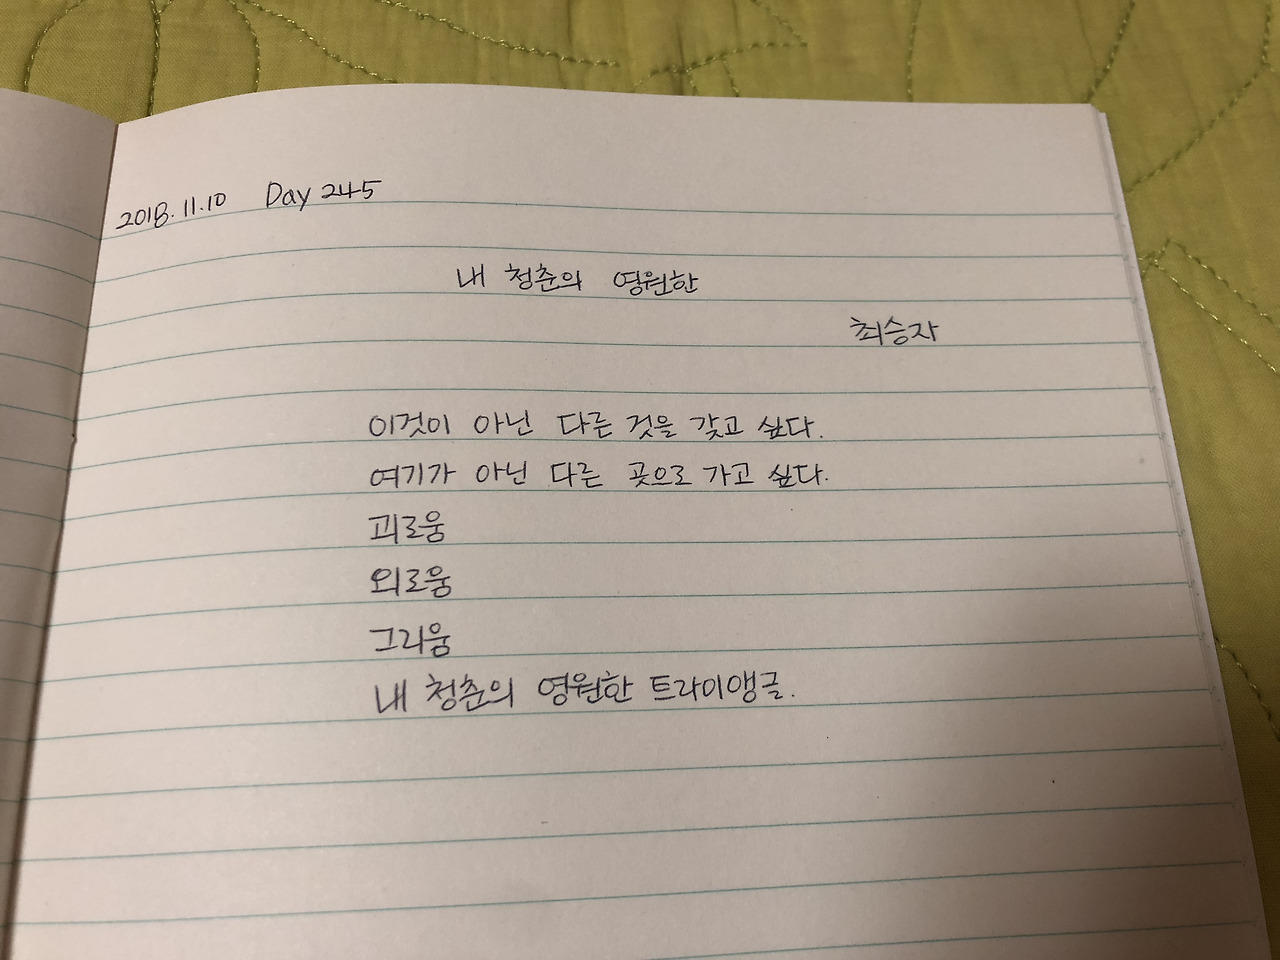 2018. 11. 10 Day 245
내 청춘의 영원한
최승자
이것이 아닌 다른 것을 갖고 싶다.
여기가 아닌 다른 곳으로 가고 싶다.
괴로움
외로움
그리움
내 청춘의 영원한 트라이앵글.